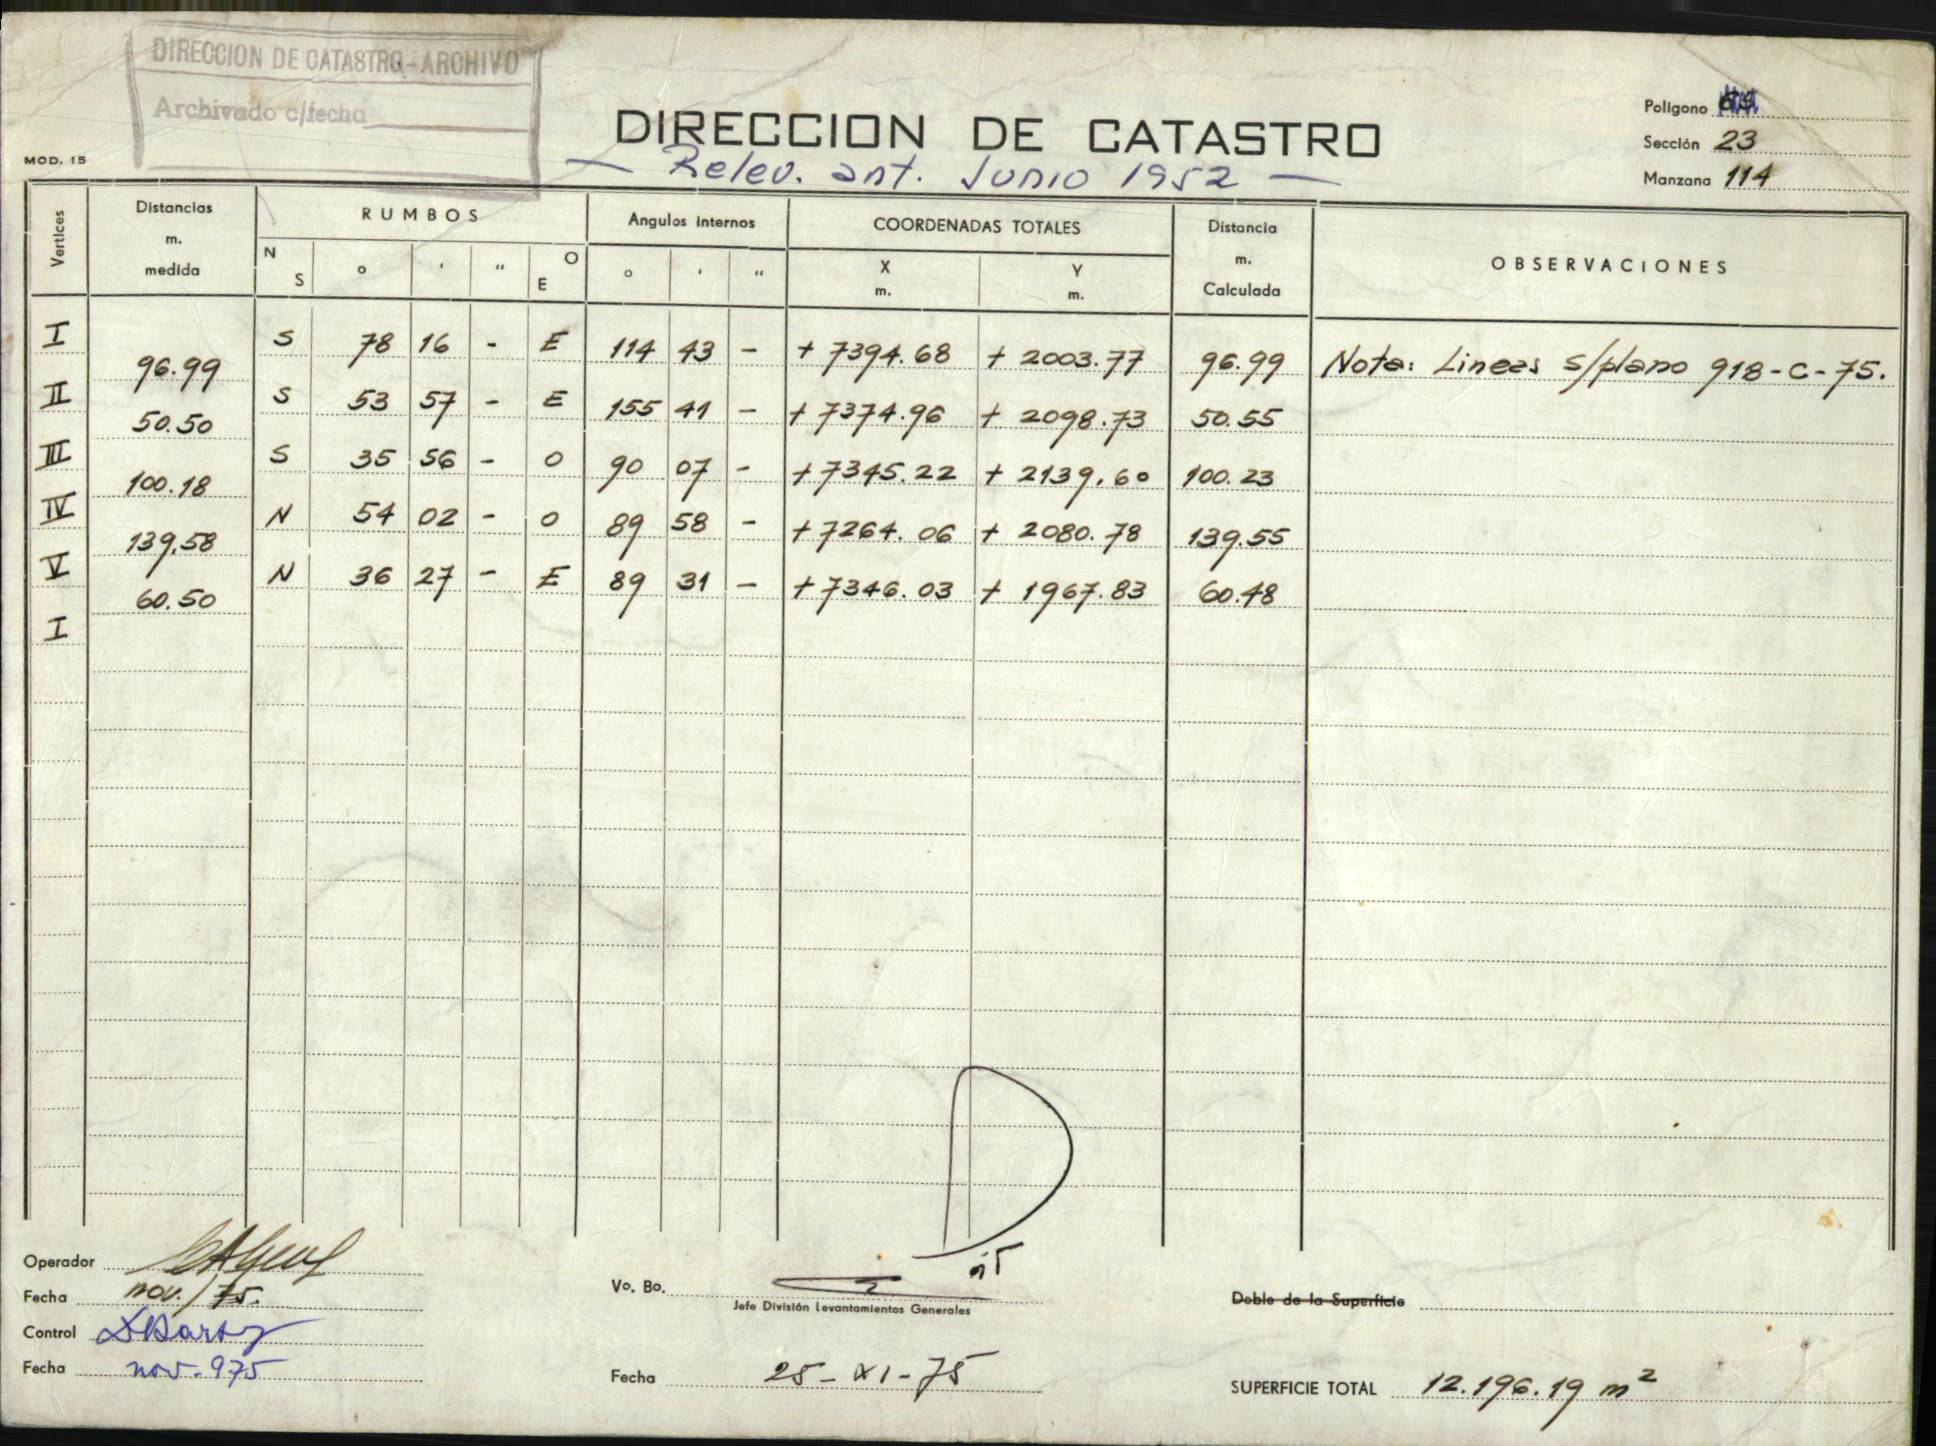 DIRECCION DE CATASTRO - ARCHIVO
Archivado c/fecha
MOD. 15
DIRECCION DE CATASTRO
— Relev. ant. Junio 1952 —
Poligono
Sección 23
Manzana 114
Vertices Distancias m. medida RUMBOS Angulos internos COORDENADAS TOTALES Distancia m. Calculada OBSERVACIONES
N S ° ' " O E ° ' " X m. Y m.
I S 78 16 - E 114 43 - + 7394.68 + 2003.77
96.99 96.99 Nota: Lineas s/plano 918-C-75.
II S 53 57 - E 155 41 - + 7374.96 + 2098.73
50.50 50.55
III S 35 56 - O 90 07 - + 7345.22 + 2139.60
100.18 100.23
IV N 54 02 - O 89 58 - + 7264.06 + 2080.78
139,58 139.55
V N 36 27 - E 89 31 - + 7346.03 + 1967.83
60.50 60.48
I
Operador
Fecha nov./75.
Control
Fecha nov.-975
Vo. Bo.
Jefe División Levantamientos Generales
Fecha 25-XI-75
Doble de la Superficie
SUPERFICIE TOTAL 12.196.19 m²